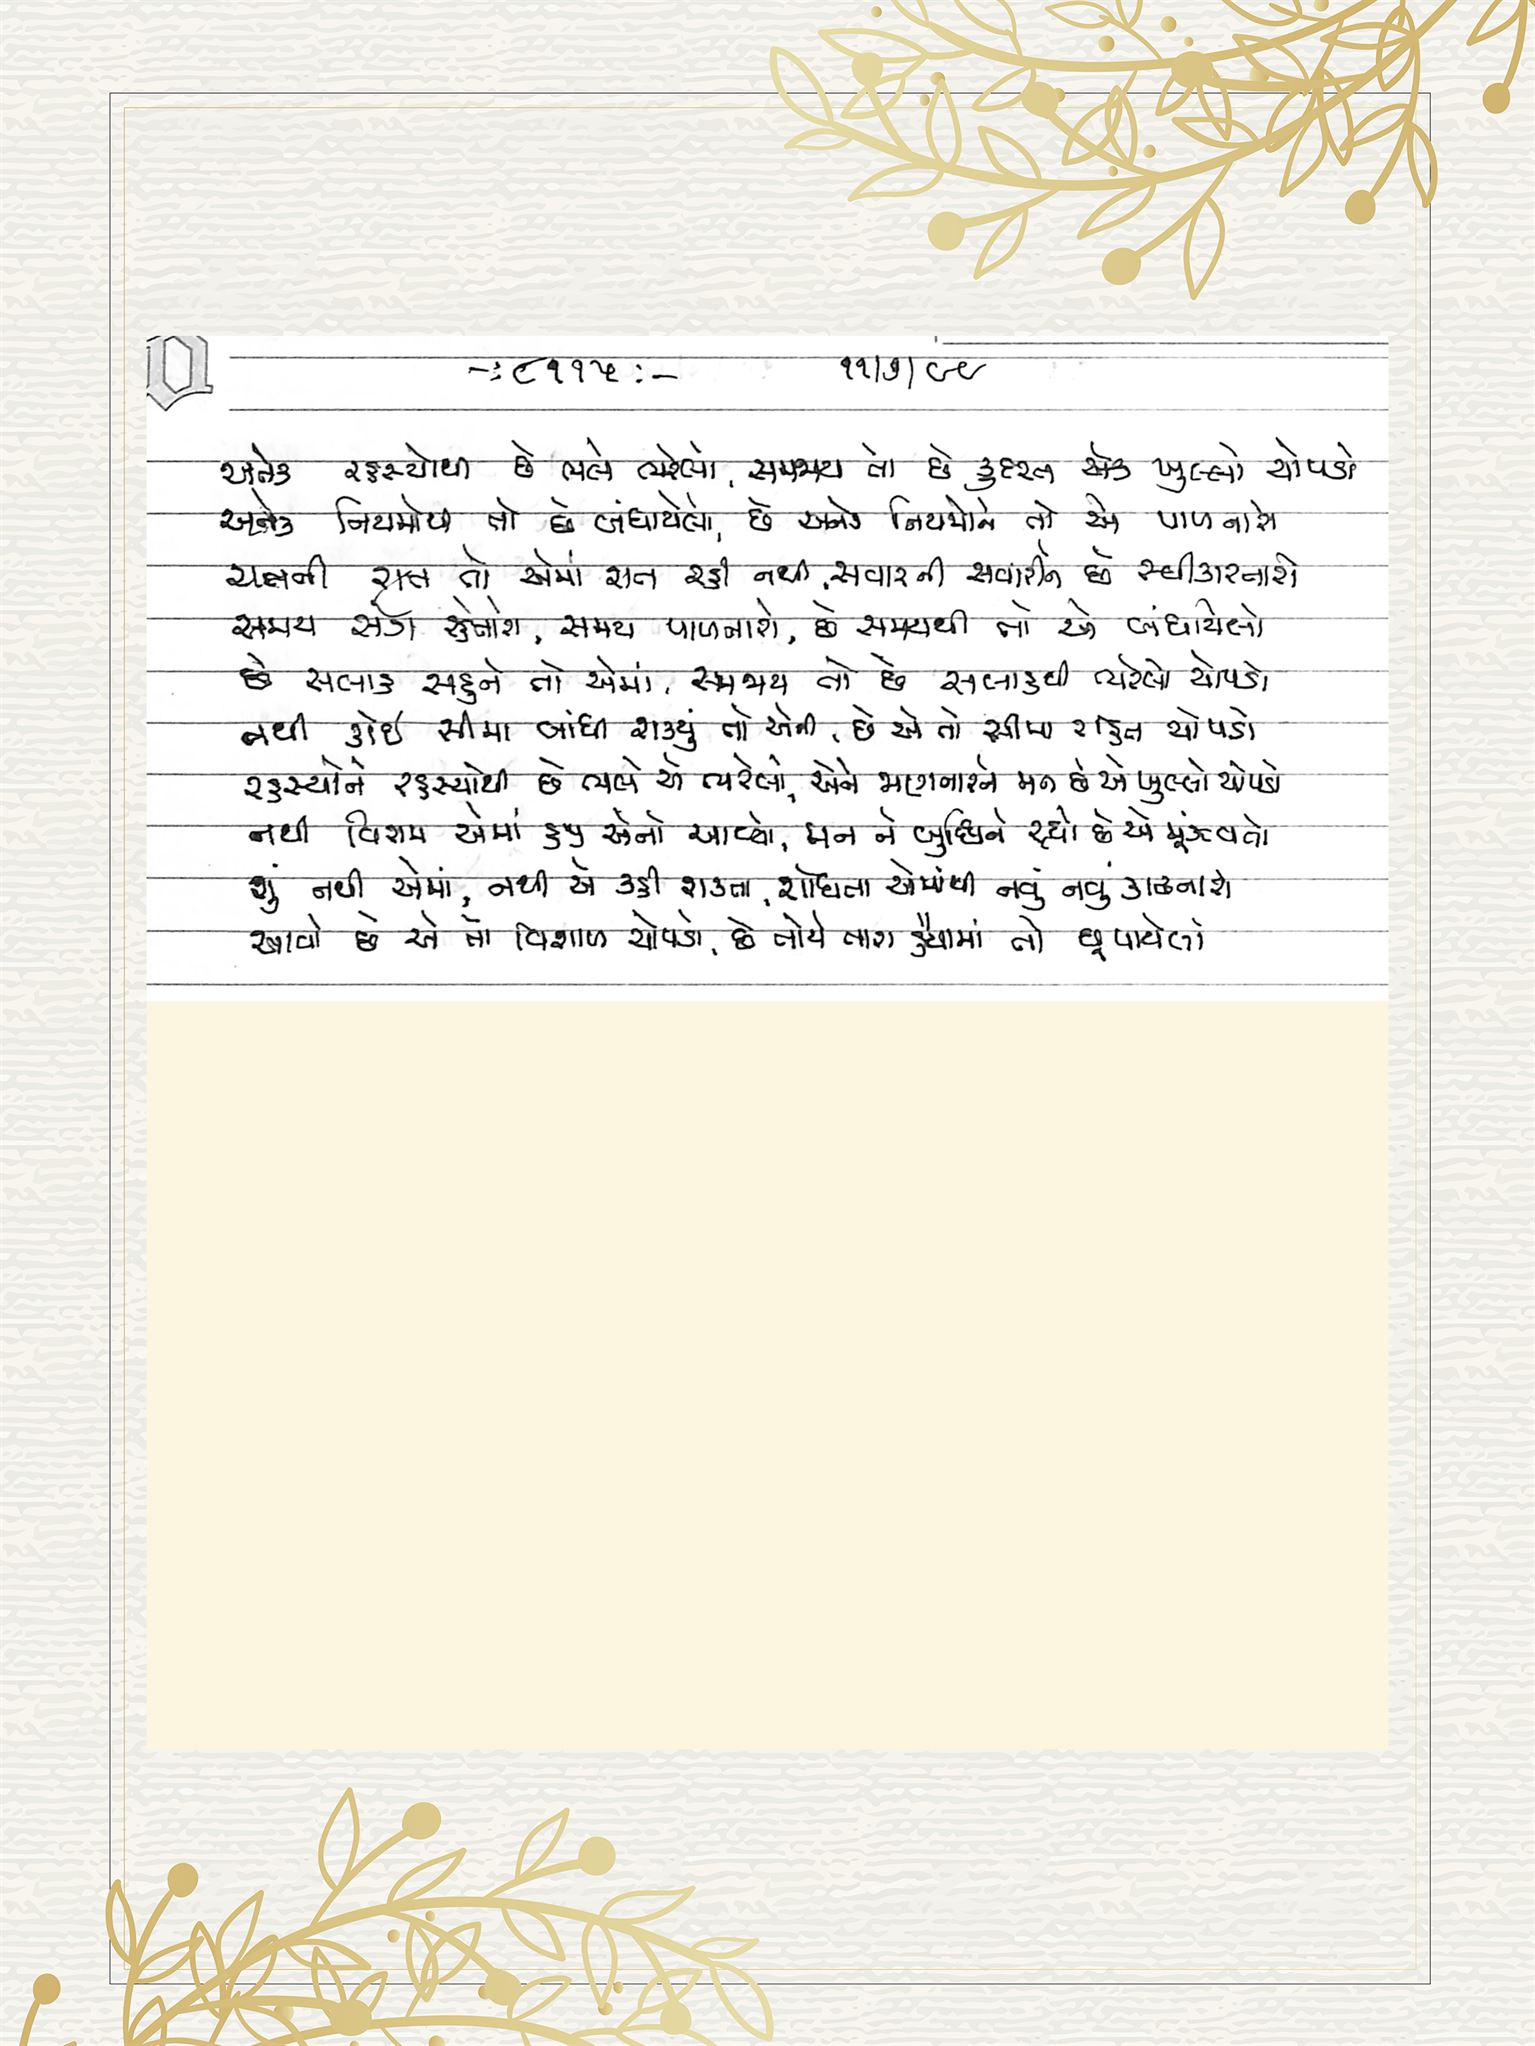 -: ૯૧૧૫ :- ૧૧/૭/૯૯
અનેક રહસ્યોથી છે ભલે ભરેલો, સમજાય તો છે કુદરત એક ખુલ્લો ચોપડો
અનેક નિયમોથી તો છે બંધાયેલો, છે અનેક નિયમોને તો એ પાળનારો
રાત તો એમાં રાત રહી નથી, સવારની સવારીને છે સ્વીકારનારો
સમય સમય પાળનારો, છે સમયથી તો એ બંધાયેલો
છે સલાહ સહુને તો એમાં, સમજાય તો છે સલાહથી ભરેલો ચોપડો
નથી કોઈ સીમા બાંધી શક્યું તો એની, છે એ તો સીમા રહિત ચોપડો
રહસ્યોને રહસ્યોથી છે ભલે એ ભરેલો, એને ભણનારને મન છે એ ખુલ્લો ચોપડો
નથી વિરામ એમાં હજુ એનો આવ્યો, મન ને બુદ્ધિને રહ્યો છે એ મૂંઝવતો
શું નથી એમાં, નથી એ કહી શકતા, શોધતા એમાંથી નવું નવું કાઢનારો
આવો છે એ તો વિશાળ ચોપડો, છે તોયે તારા હૈયામાં તો છૂપાયેલો